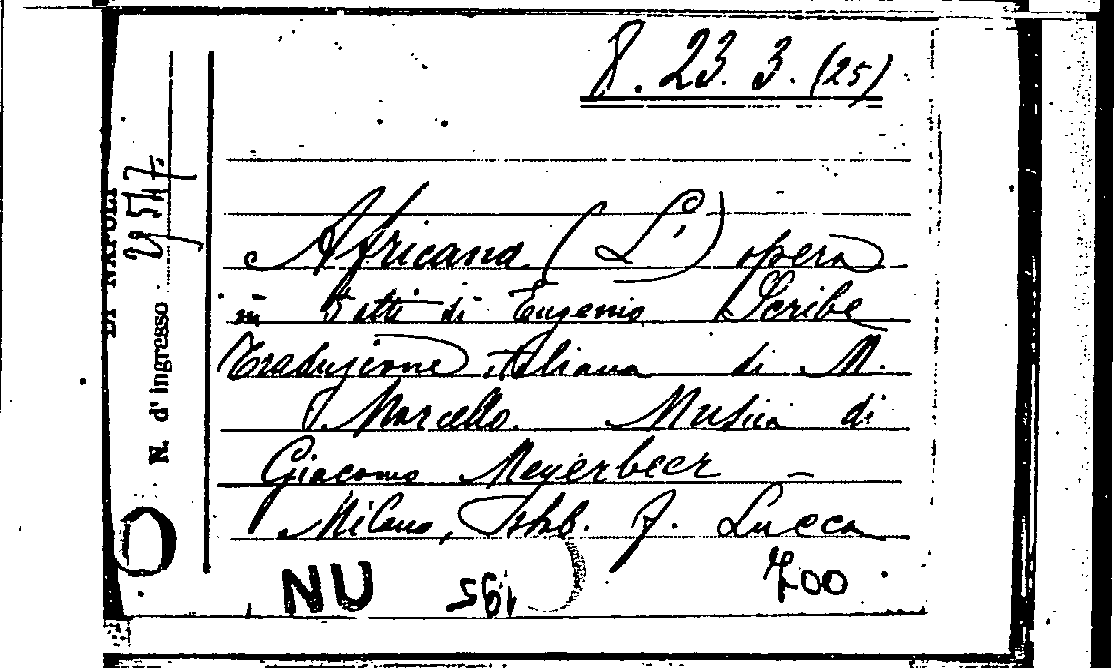 8. 23. 3. (25)
Africana (L') opera
in 5 atti di Eugenio Scribe
Traduzione italiana di M.
Marcello. Musica di
Giacomo Meyerbeer –
Milano, Stab. F. Lucca
700
DI NAPOLI
N. d'ingresso